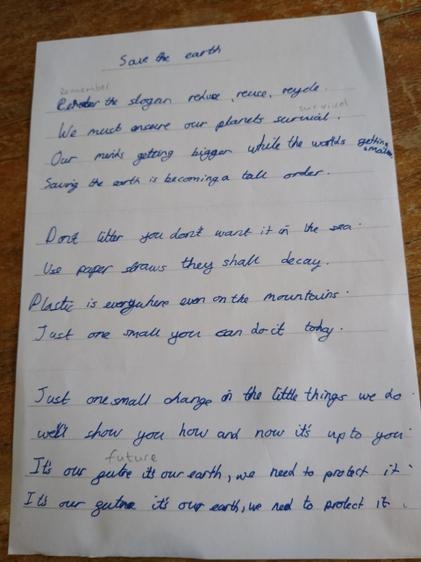 Save the earth
Remember
the slogan reduse, reuse, recycle.
survival
We must ensure our planets survival.
Our marks getting bigger while the worlds getting smaller
Saving the earth is becoming a tall order.
Don't litter you don't want it in the sea.
Use paper straws they shall decay.
Plastic is everywhere even on the mountains.
Just one small you can do it today.
Just one small change in the little things we do.
we'll show you how and now it's up to you.
future
It's our gutre it's our earth, we need to protect it.
It's our gutrue it's our earth, we need to protect it.